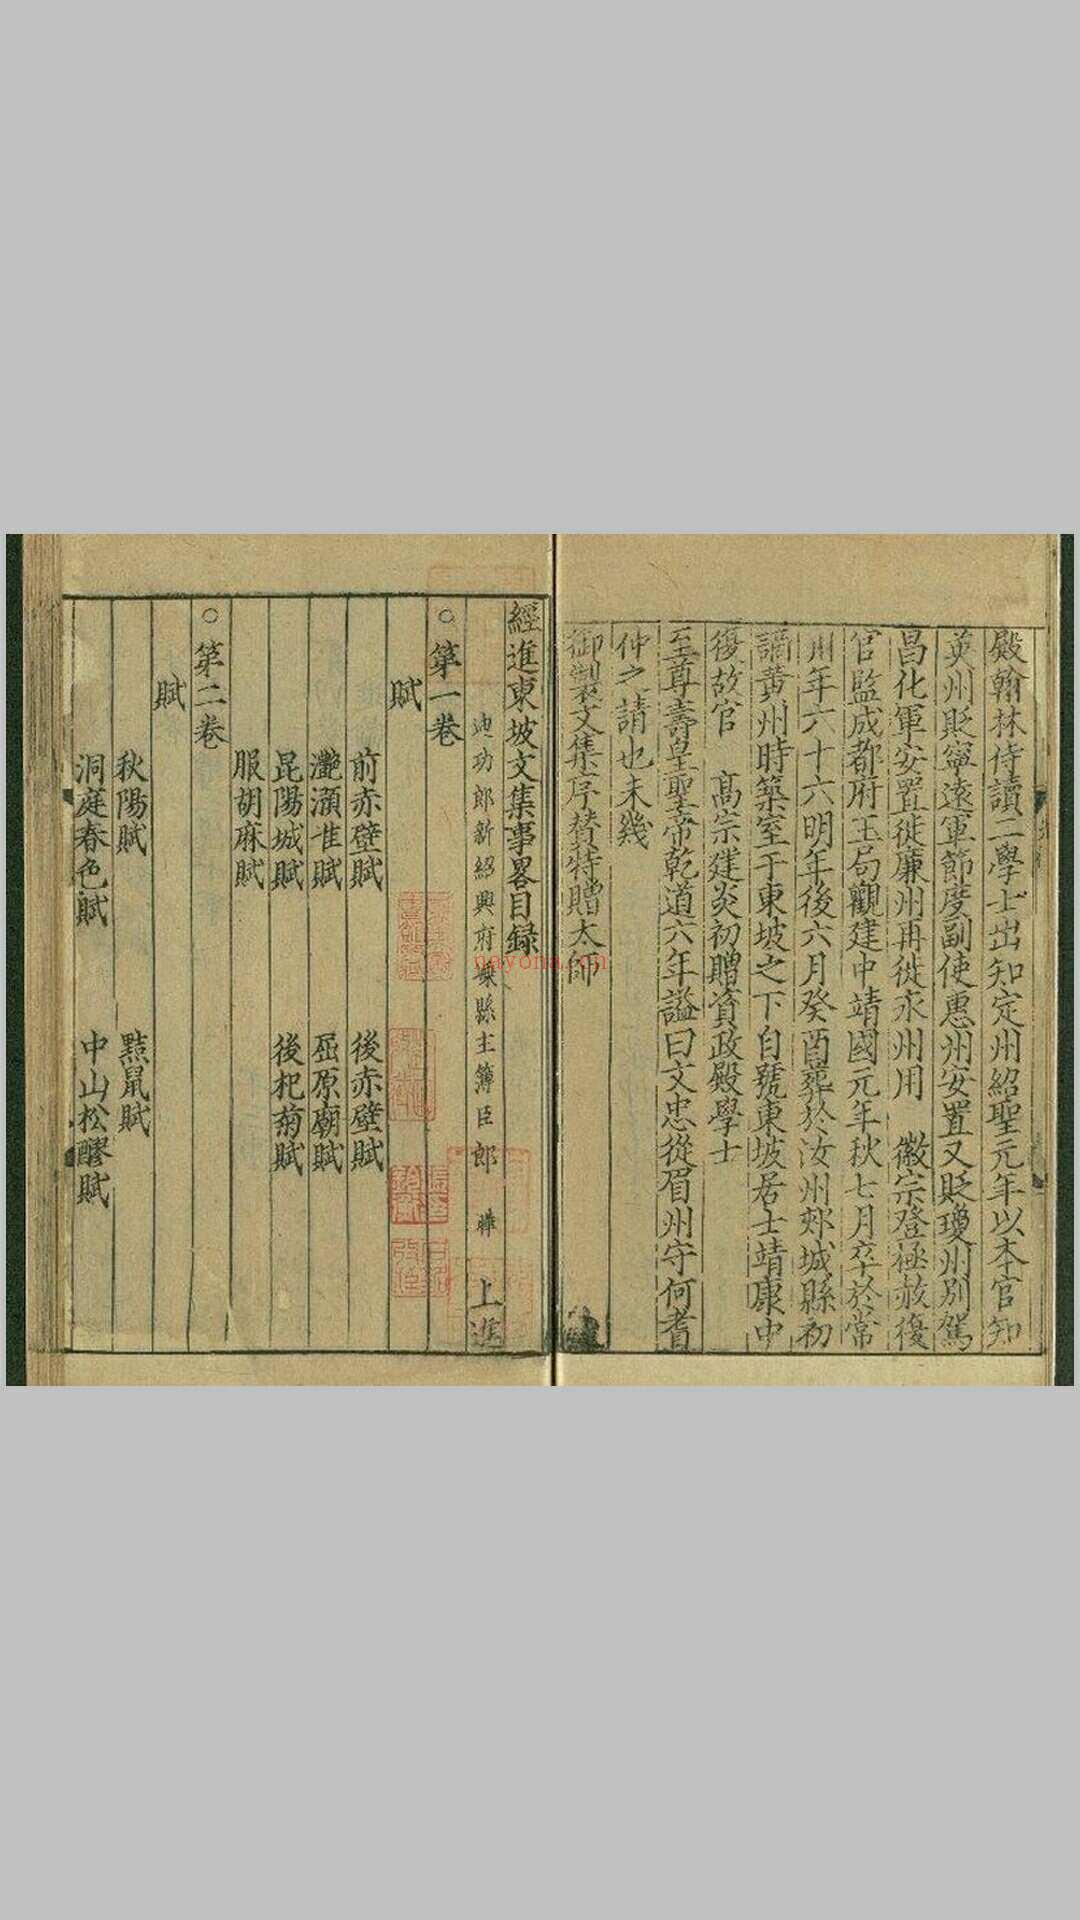 殿翰林侍讀二學士出知定州紹聖元年以本官知
英州貶寧遠軍節度副使惠州安置又貶瓊州別駕
昌化軍安置徙廉州再徙永州用 徽宗登極赦復
官監成都府玉局觀建中靖國元年秋七月卒於常
州年六十六明年後六月癸酉葬於汝州郟城縣初
謫黃州時築室于東坡之下自號東坡居士靖康中
復故官 高宗建炎初贈資政殿學士
至尊壽皇聖帝乾道六年謚曰文忠從眉州守何耆
仲之請也未幾
御製文集序贊特贈太師
經進東坡文集事畧目録
迪功郎新紹興府嵊縣主簿臣郎 曄 上進
○第一卷
賦
前赤壁賦 後赤壁賦
灧澦堆賦 屈原廟賦
昆陽城賦 後杞菊賦
服胡麻賦
○第二卷
賦
秋陽賦 黠鼠賦
洞庭春色賦 中山松醪賦
nayona.cn